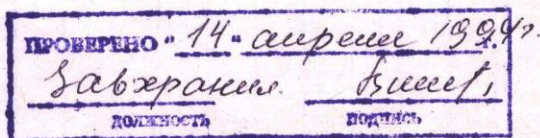 ПРОВЕРЕНО "14" апреля 1994г.
Завхранил.
должность подпись